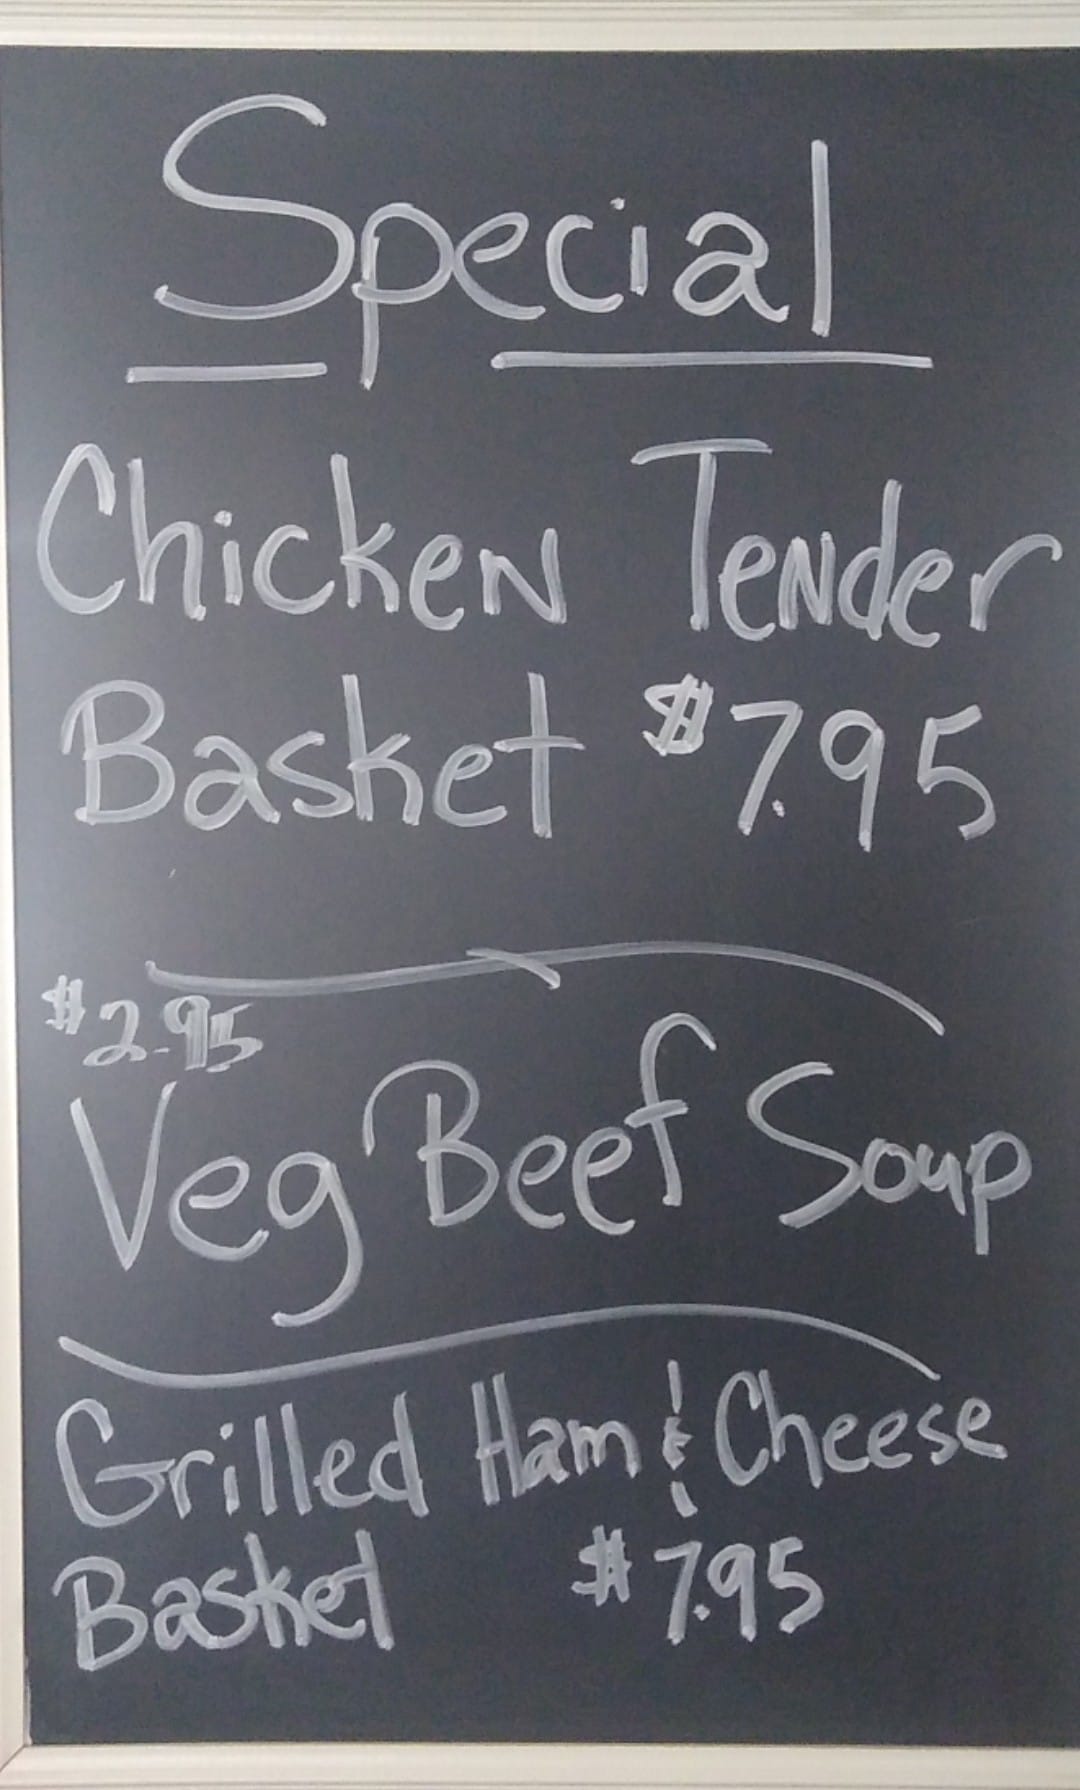 Special
Chicken Tender
Basket $7.95
$2.95
Veg Beef Soup
Grilled Ham & Cheese
Basket $7.95